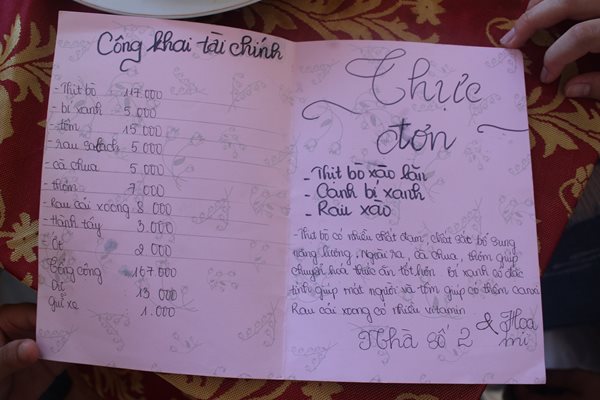 Công khai tài chính
- Thịt bò 17.000
- bí xanh 5.000
- tôm 15.000
- rau salach 5.000
- cà chua 5.000
- thơm 7.000
- Rau cải xoong 8.000
- Hành tây 3.000
Ớt 2.000
Tổng cộng 167.000
Dư 13.000
Gửi xe 1.000
Thực
đơn
- Thịt bò xào lăn
- Cánh bí xanh
- Rau xào
- Thịt bò có nhiều chất đạm, chất sắt bổ sung
năng lượng, ngoài ra, cà chua, thơm giúp
chuyển hoá thức ăn tốt hơn. bí xanh có đặc
tính giúp mát người và tôm giúp có thêm canxi
Rau cải xoong có nhiều vitamin
Nhà số 2 & Hoạ mi